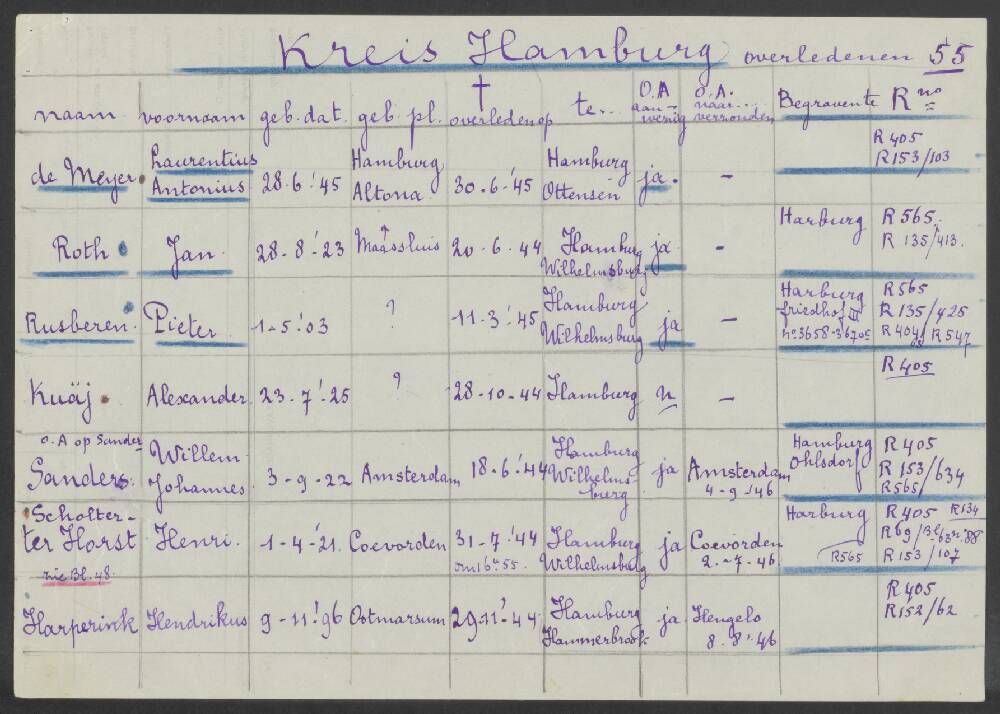 Kreis Hamburg overledenen 55
naam voornaam geb. dat. geb. pl. † overleden op te... O.A aan-wezig O.A. naar.... verzonden Begraven te R no
de Meyer Laurentius Antonius 28.6.'45 Hamburg Altona 30.6.'45 Hamburg Ottensen ja. - R 405 R153/103
Roth Jan 28-8-'23 Maassluis 20-6.44 Hamburg Wilhelmsburg ja - Harburg R565. R 135/413.
Rusberen Pieter 1-5.'03 ? 11.3.'45 Hamburg Wilhelmsburg ja - Harburg friedhof III R565 R135/425 R404 R547
Kuäj Alexander 23-7-'25 ? 28-10-44 Hamburg n - R405
o.A op Sander
Sanders Willem Johannes 3-9-22 Amsterdam 18.6.'44 Hamburg Wilhelms-burg ja Amsterdam 4-9-'46 Hamburg Ohlsdorf R405 R153/634 R565
Scholter-
ter Horst Henri 1-4-'21. Coevorden 31-7.'44 om 16 55. Hamburg Wilhelmsburg ja Coevorden 2.-7.46 Harburg R565 R405 R134 R69/ R153/107
zie Bl. 48.
Harperink Hendrikus 9-11.'96 Ootmarsum 29.11.'44 Hamburg Hammerbrook ja Hengelo 8.8.'46 R405 R152/62